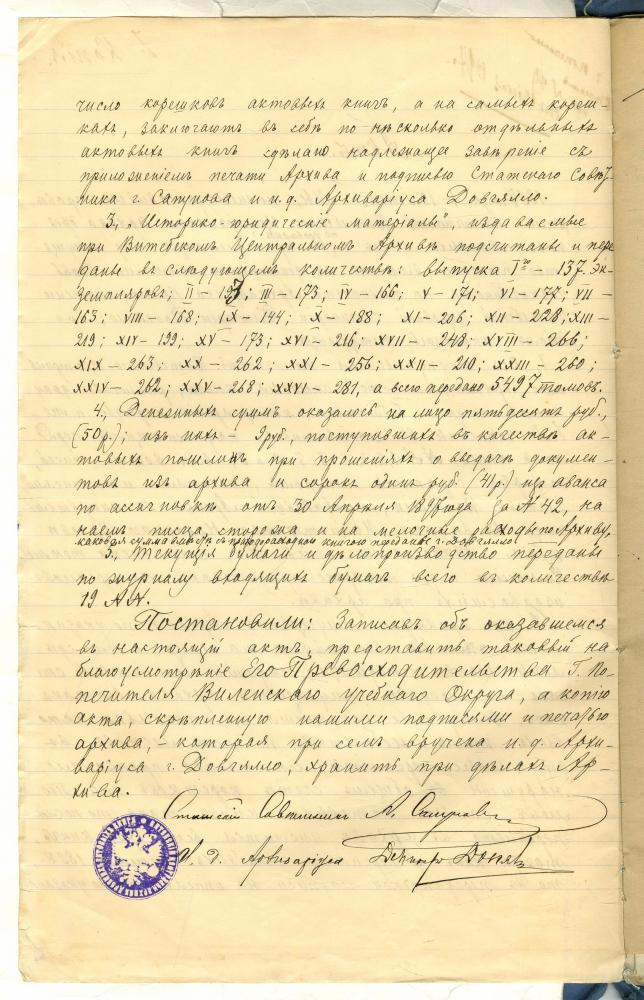 число корешковъ актовыхъ книгъ, а на самыхъ кореш-
кахъ, заключаютъ въ себѣ по нѣсколько отдѣльныхъ
актовыхъ книгъ сдѣлано надлежащее завѣреніе съ
приложеніемъ печати Архива и подписью Статскаго Совѣт-
ника г. Сапунова и и.д. Архиваріуса Довгялло.
3., „Историко-юридическіе матеріалы", издаваемые
при Витебскомъ Центральномъ Архивѣ подсчитаны и пере
даны въ слѣдующемъ количествѣ: выпуска Iго – 137 эк-
земпляровъ; II – 197; III – 173; IV – 166; V – 171; VI – 177; VII –
163; VIII – 168; IX – 144; X – 188; XI – 206; XII – 228; XIII –
219; XIV – 199; XV – 173; XVI – 216; XVII – 248; XVIII – 266;
XIX – 263; XX – 262; XXI – 256; XXII – 210; XXIII – 260;
XXIV – 262; XXV – 268; XXVI – 281, а всего передано 5497 томовъ.
4., Денежныхъ суммъ оказалось на лицо пятьдесятъ руб.,
(50 р.); изъ нихъ – 9 руб., поступившихъ въ качествѣ ак-
товыхъ пошлинъ при прошеніяхъ о выдачѣ докумен-
товъ изъ архива и сорокъ одинъ руб. (41 р.) изъ аванса
по ассигновкѣ отъ 30 Апрѣля 1897 года за № 42, на
наемъ писца, сторожа и на мелочные расходы по Архиву,
каковая сумма вмѣстѣ съ приходорасходной книгою переданы г. Довгялло!
5., Текущія бумаги и дѣлопроизводство переданы
по журналу входящихъ бумагъ всего въ количествѣ
19 №№.
Постановили: Записавъ объ оказавшемся
въ настоящій актъ, представить таковый на
благоусмотрѣніе Его Превосходительства Г. По-
печителя Виленскаго Учебнаго Округа, а копію
акта, скрѣпленную нашими подписями и печатью
архива, – которая при семъ вручена и.д. Архи-
варіуса г. Довгялло, хранить при дѣлахъ Ар-
хива.
Статскій Совѣтникъ А. Сапуновъ
И. д. Архиваріуса Дмитр Довгял